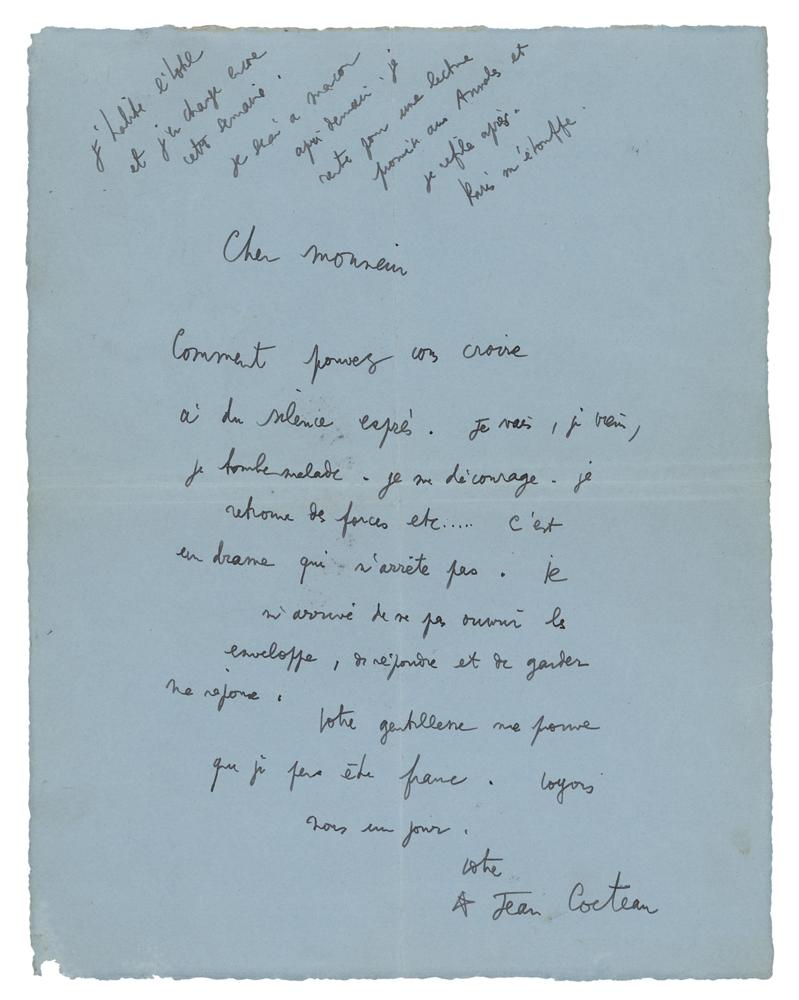 j'habite l'hotel
et j'en change encore
cette semaine.
je serai a macon
après demain. je
rentre pour une lecture
promise aux Annales et
je refile après.
Paris m'étouffe.
Cher monsieur
Comment pouvez vous croire
à du silence exprés. Je vais, je viens,
je tombe malade. je me décourage. je
retrouve des forces etc..... C'est
un drame qui n'arrête pas. Il
m'arrive de ne pas ouvrir les
enveloppe, de répondre et de garder
ma réponse.
Votre gentillesse me prouve
que je peux être franc. Voyons
nous un jour.
votre
Jean Cocteau